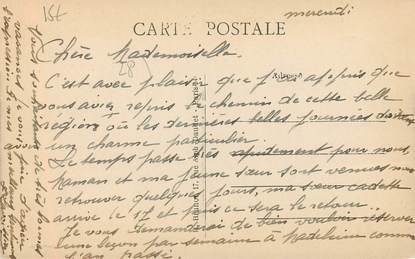 15f
CARTE POSTALE
mercredi
Chère Mademoiselle.
28
C'est avec plaisir que j'ai appris que
vous aviez repris le chemin de cette belle
région où les dernières belles journées
un charme particulier.
Le temps passe très rapidement pour nous,
Maman et ma jeune sœur sont venues nous
retrouver quelques jours, ma sœur cadette
arrive le 17 et puis ce sera le retour.
Je vous demanderai de bien vouloir réserver
une leçon par semaine à Madeleine comme
l'an passé.
vous souhaitant de très bonnes
vacances je vous prie d'agréer
l'expression de mes meilleurs